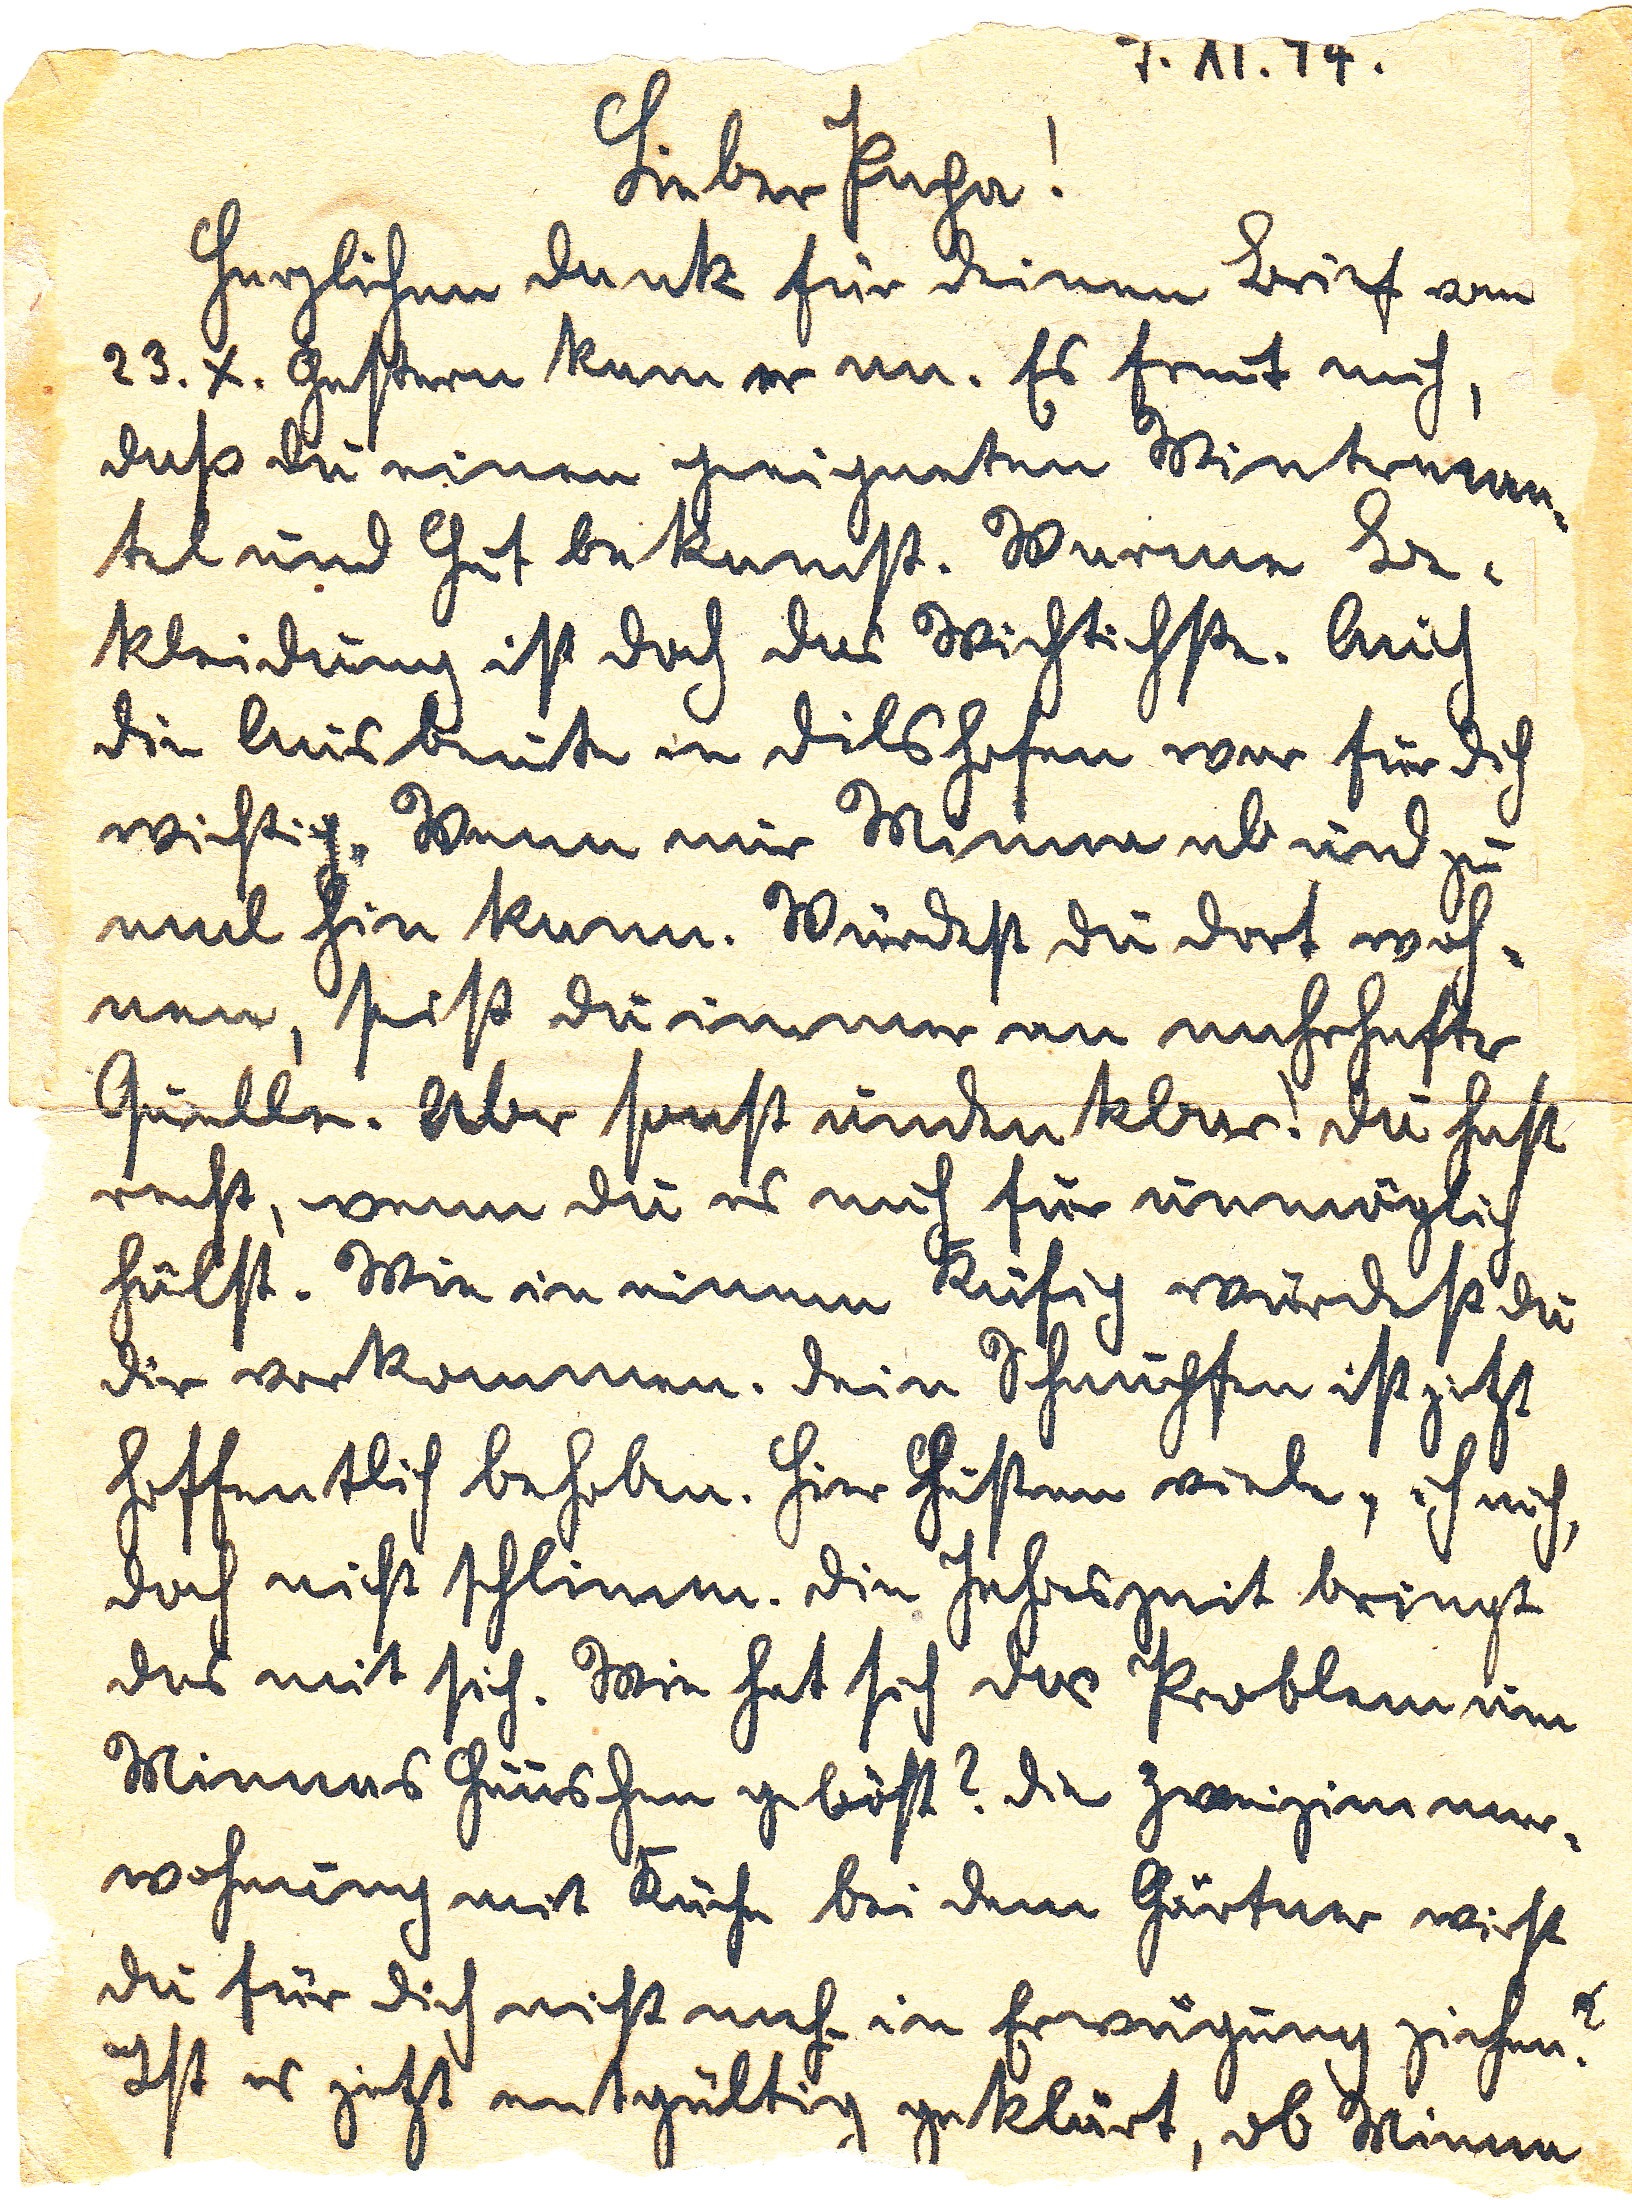 7. XI. 74.
Lieber Papa!
Herzlichen Dank für deinen Brief vom
23. X. Gestern kam er an. Es freut mich,
daß du einen geeigneten Winterman-
tel und Hut bekamst. Warme Be-
kleidung ist doch das Wichtichste. Auch
die Ausbeute in Dilshofen war für dich
wichtig. Wenn nur Minna ab und zu
mal hin kann. Würdest du dort woh-
nen, säst du immer an nahrhafter
Quelle. Aber sonst undenkbar! Du hast
recht, wenn du es auch für unmöglich
hälst. Wie in einem Käfig würdest du
dir vorkommen. Dein Schnupfen ist jetzt
hoffentlich behoben. Hier Husten viele, ich auch,
doch nicht schlimm. Die Jahreszeit bringt
das mit sich. Wie hat sich das Problem um
Minnas Häuschen gelöst? Die Zweizimmer-
wohnung mit Küche bei dem Gärtner wirst
du für dich nicht mehr in Erwägung ziehen?
Ist es jetzt entgültig geklärt, ob Minna